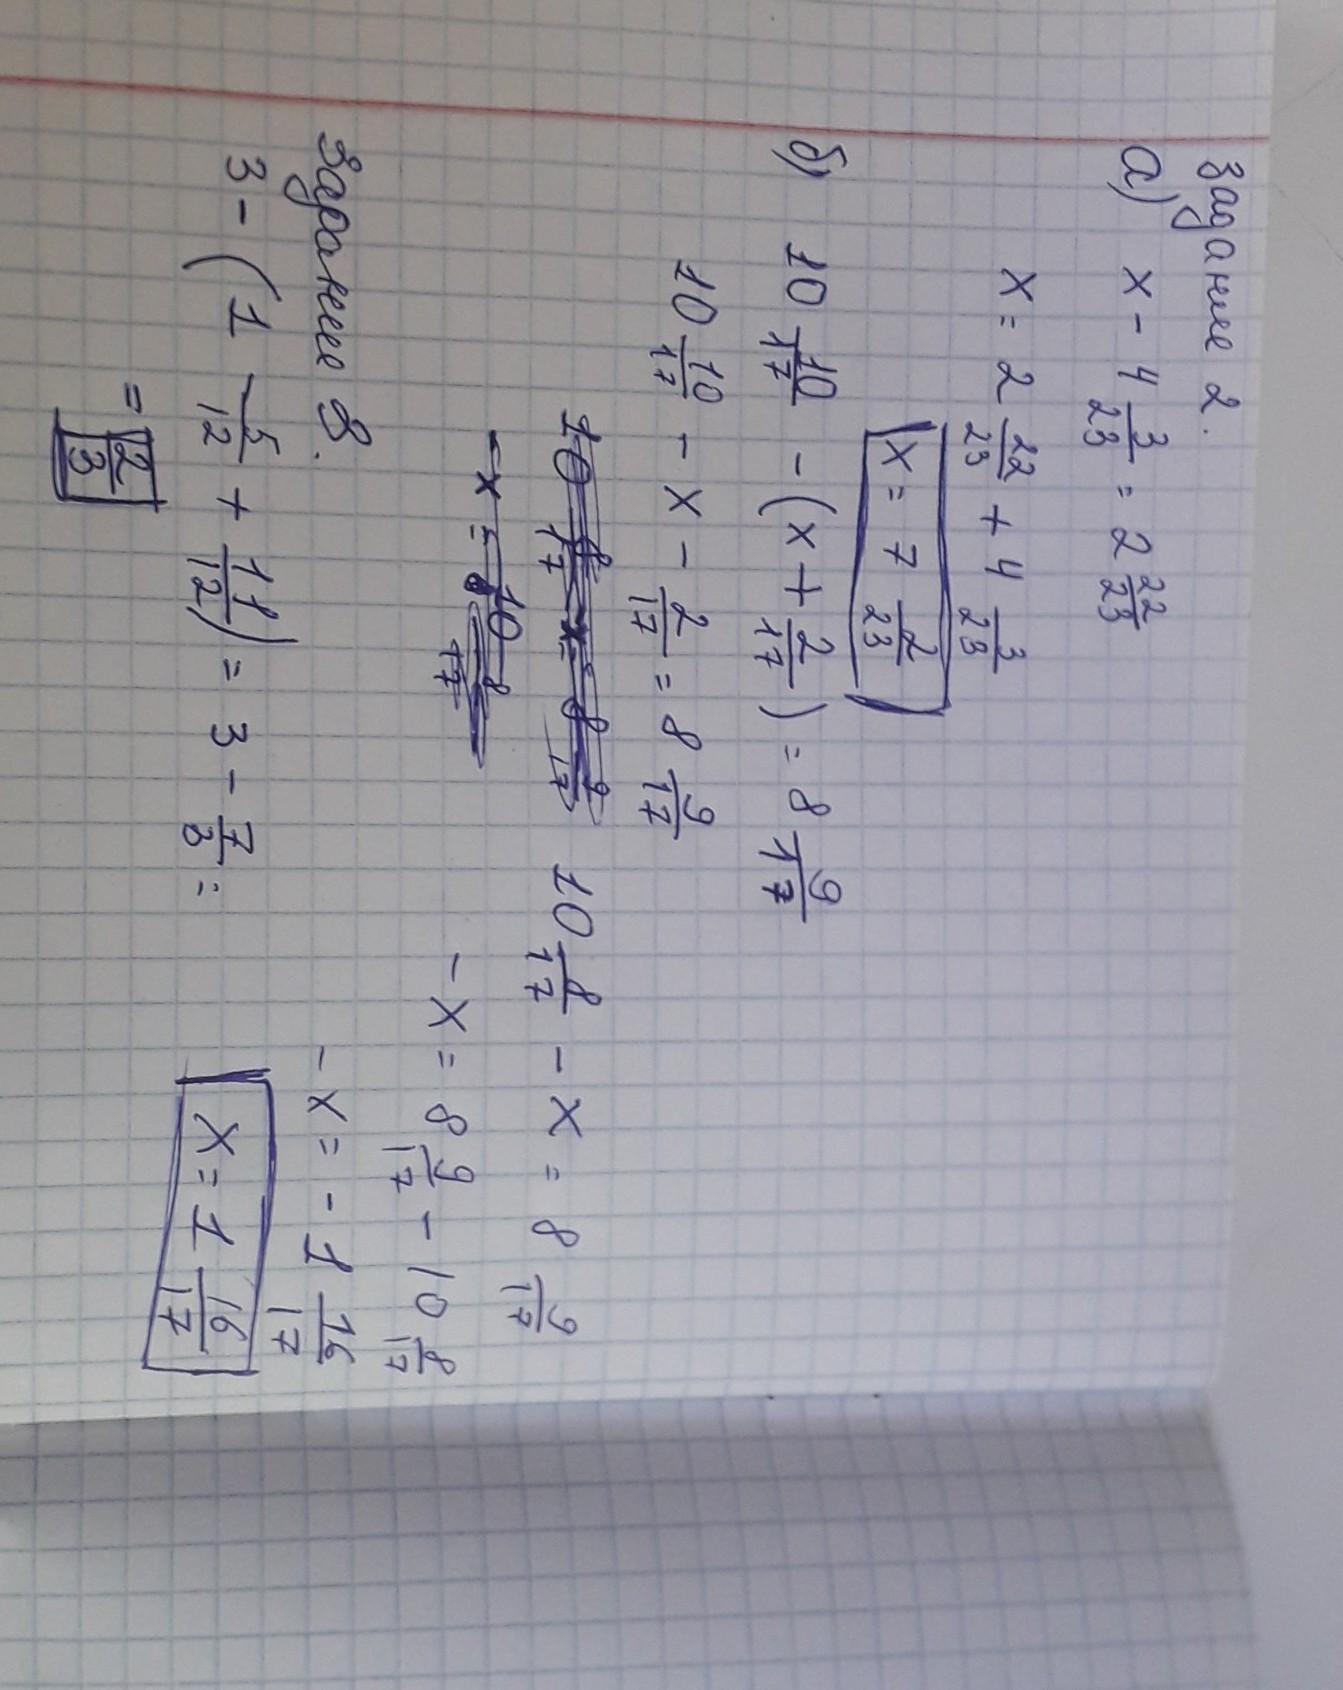 Задание 2.
а) x - 4 3/23 = 2 22/23
x = 2 22/23 + 4 3/23
x = 7 2/23
б) 10 10/17 - (x + 2/17) = 8 9/17
10 10/17 - x - 2/17 = 8 9/17
10 8/17 - x = 8 9/17
- x = 8 9/17 - 10 8/17
- x = - 1 16/17
x = 1 16/17
Задание 8.
3 - (1 5/12 + 11/12) = 3 - 7/3 =
= 2/3